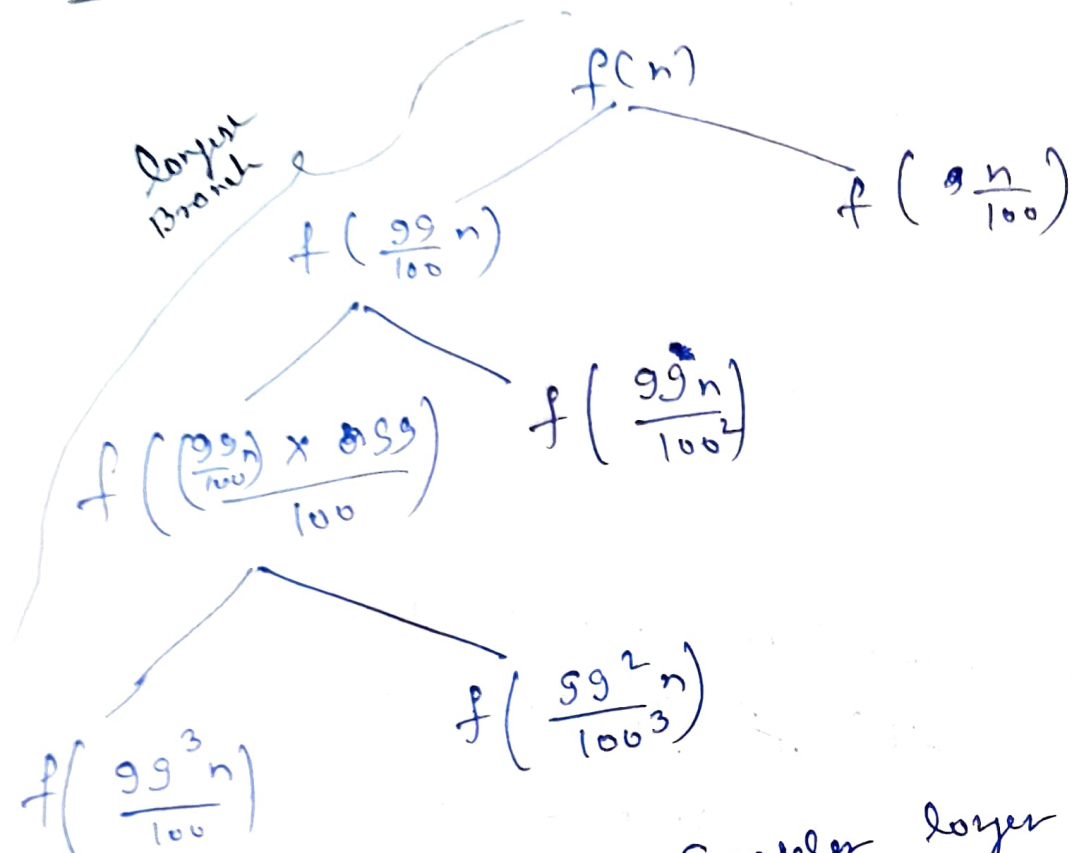 f(n)
longest
Branch
f( 99/100 n)
f( n/100 )
f( (99n/100) × 99 / 100 )
f( 99n / 100² )
f( 99³n / 100 )
f( 99²n / 100³ )
longer